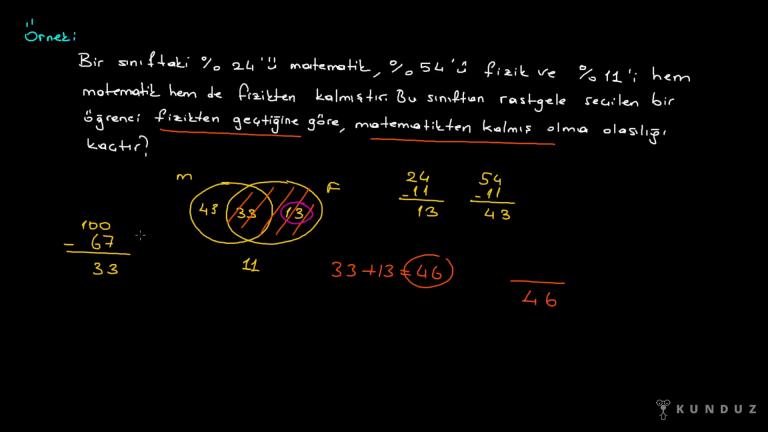 Örnek:
Bir sınıftaki % 24'ü matematik, % 54'ü fizik ve % 11'i hem
matematik hem de fizikten kalmıştır. Bu sınıftan rastgele seçilen bir
öğrenci fizikten geçtiğine göre, matematikten kalmış olma olasılığı
kaçtır?
M F
43 33 13
11
24
-11
13
54
-11
43
100
- 67
33
33+13=46
46
KUNDUZ